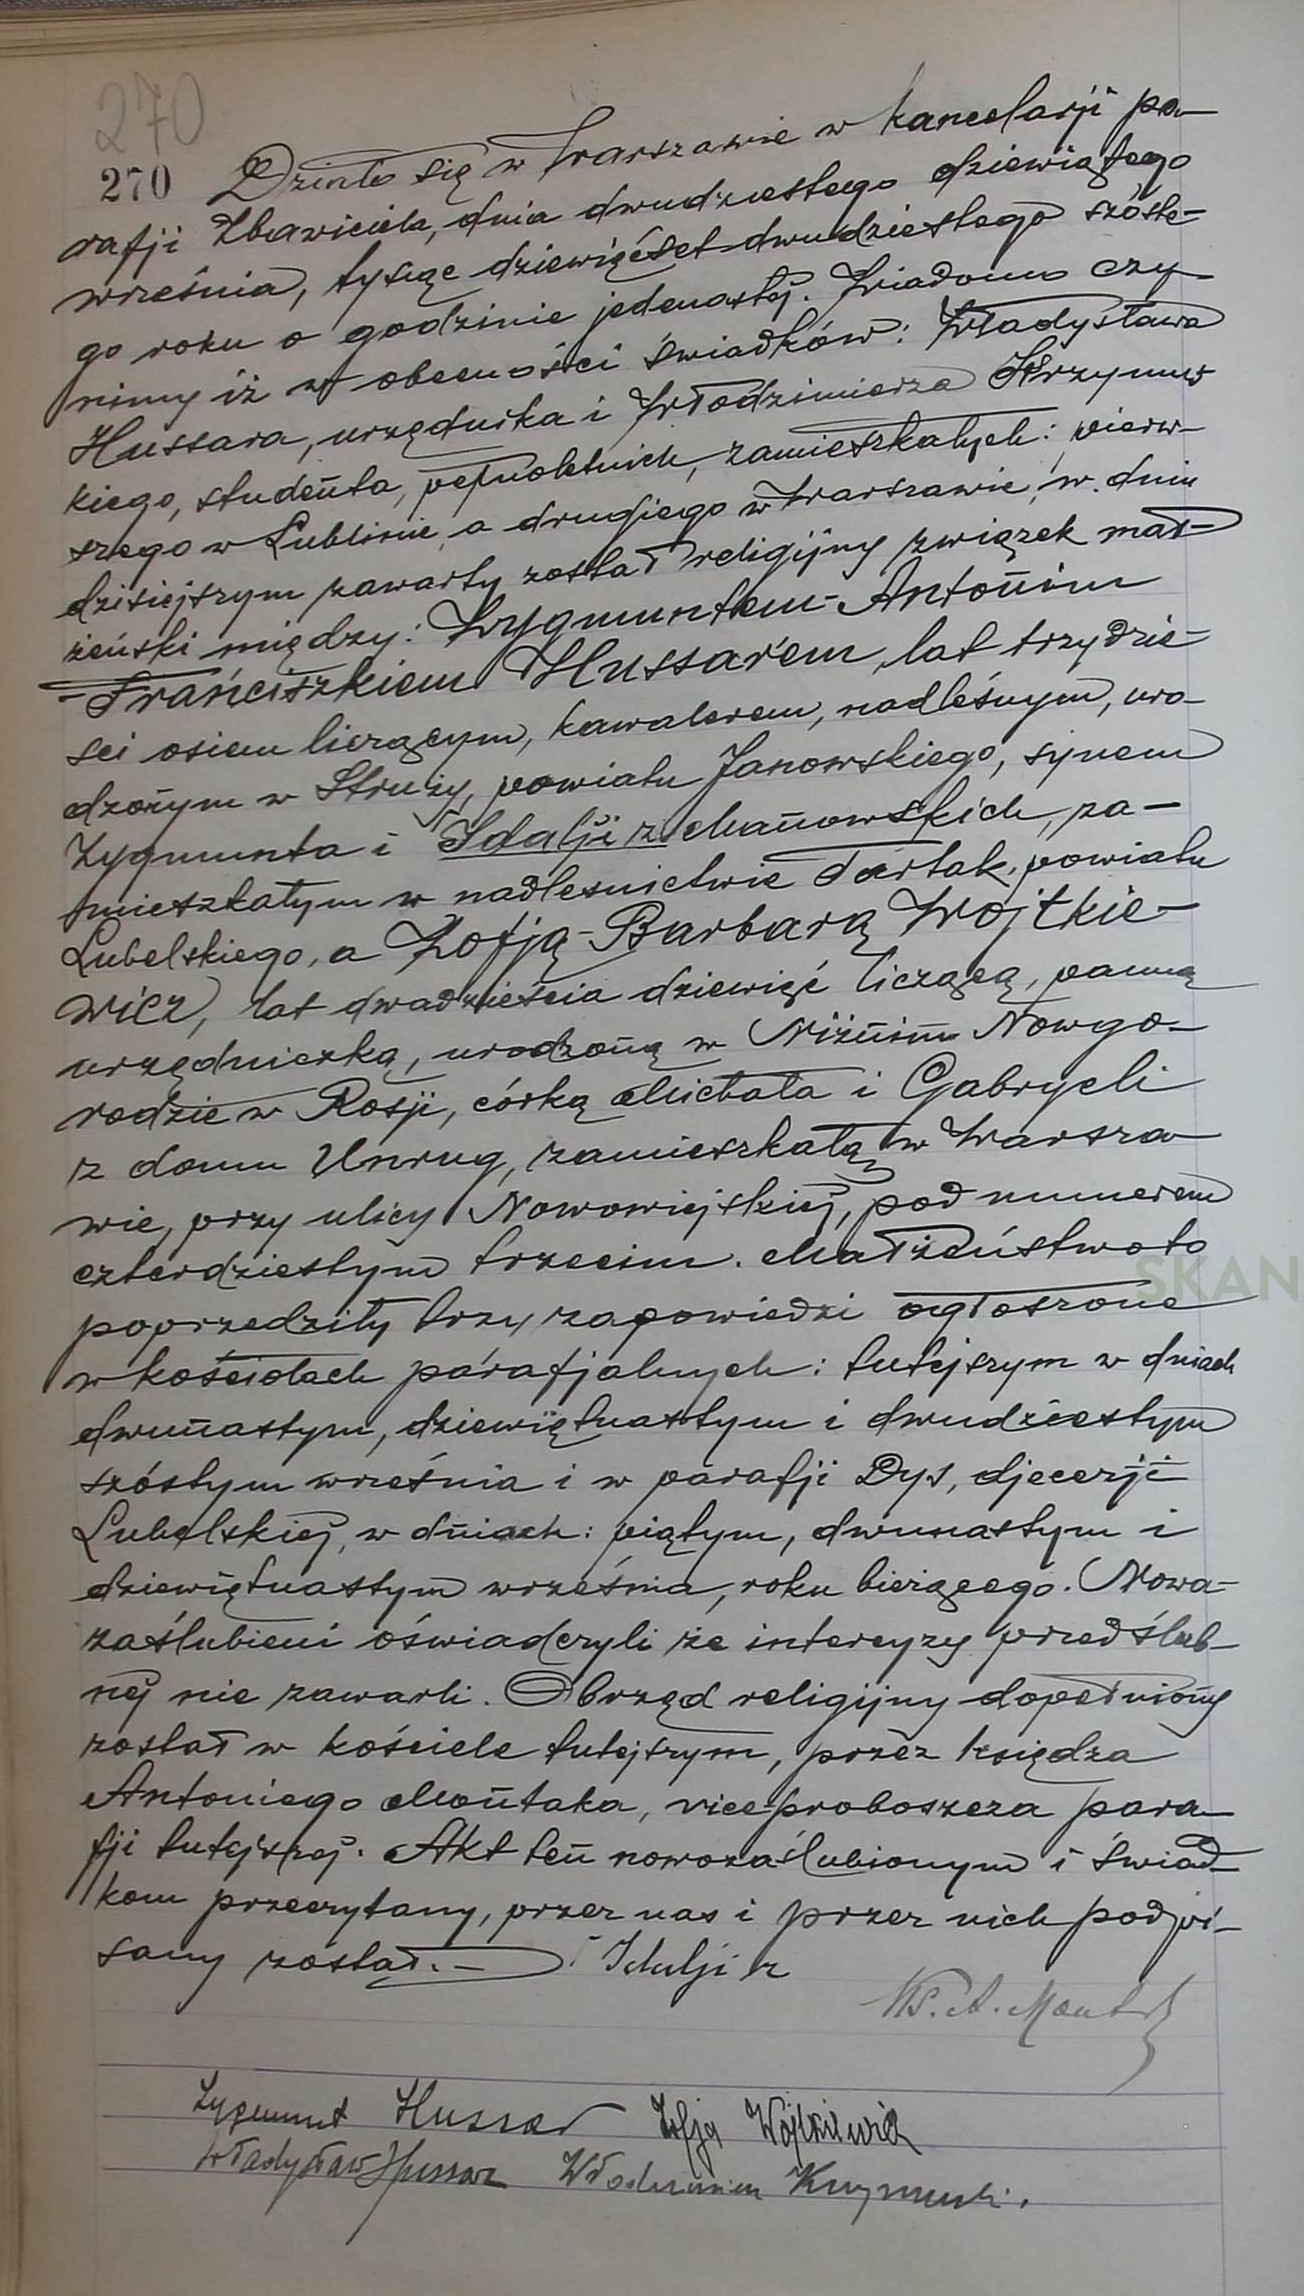 270
270 Działo się w Warszawie w kancelarji pa-
rafji Zbawiciela, dnia dwudziestego dziewiątego
września, tysiąc dziewięćset dwudziestego szóste-
go roku o godzinie jedenastej. Wiadomo czy-
nimy iż w obecności świadków: Władysława
Hussara, urzędnika i Włodzimierza Krzymus-
kiego, studenta, pełnoletnich, zamieszkałych: pierw-
szego w Lublinie, a drugiego w Warszawie, w dniu
dzisiejszym zawarty został religijny związek mał-
żeński między: Zygmuntem-Antonim
-Franciszkiem Hussarem, lat trzydzie-
ści osiem liczącym, kawalerem, nadleśnym, uro-
dzonym w Struży, powiatu Janowskiego, synem
Zygmunta i Idalji z Manowskich, za-
mieszkałym w nadleśnictwie Tartak, powiatu
Lubelskiego, a Zofją-Barbarą Wojtkie-
wicz, lat dwadzieścia dziewięć liczącą, panną
urzędniczką, urodzoną w Niżnim Nowgo-
rodzie w Rosji, córką Michała i Gabryeli
z domu Unrug, zamieszkałą w Warsza-
wie, przy ulicy Nowowiejskiej, pod numerem
czterdziestym trzecim. Małżeństwo to
poprzedziły trzy zapowiedzi ogłoszone
w kościołach parafjalnych: tutejszym w dniach
dwunastym, dziewiętnastym i dwudziestym
szóstym września i w parafji Dys, djecezji
Lubelskiej, w dniach: piątym, dwunastym i
dziewiętnastym września, roku bieżącego. Nowo-
zaślubieni oświadczyli że intercyzy przedślub-
nej nie zawarli. Obrzęd religijny dopełniony
został w kościele tutejszym, przez księdza
Antoniego Montaka, vice-proboszcza para-
fji tutejszej. Akt ten nowozaślubionym i świad-
kom przeczytany, przez nas i przez nich podpi-
sany został.- Idalji z
KS. A. Montak
Zygmunt Hussar Zofja Wojtkiewicz
Władysław Hussar Włodzimierz Krzymuski.
SKAN